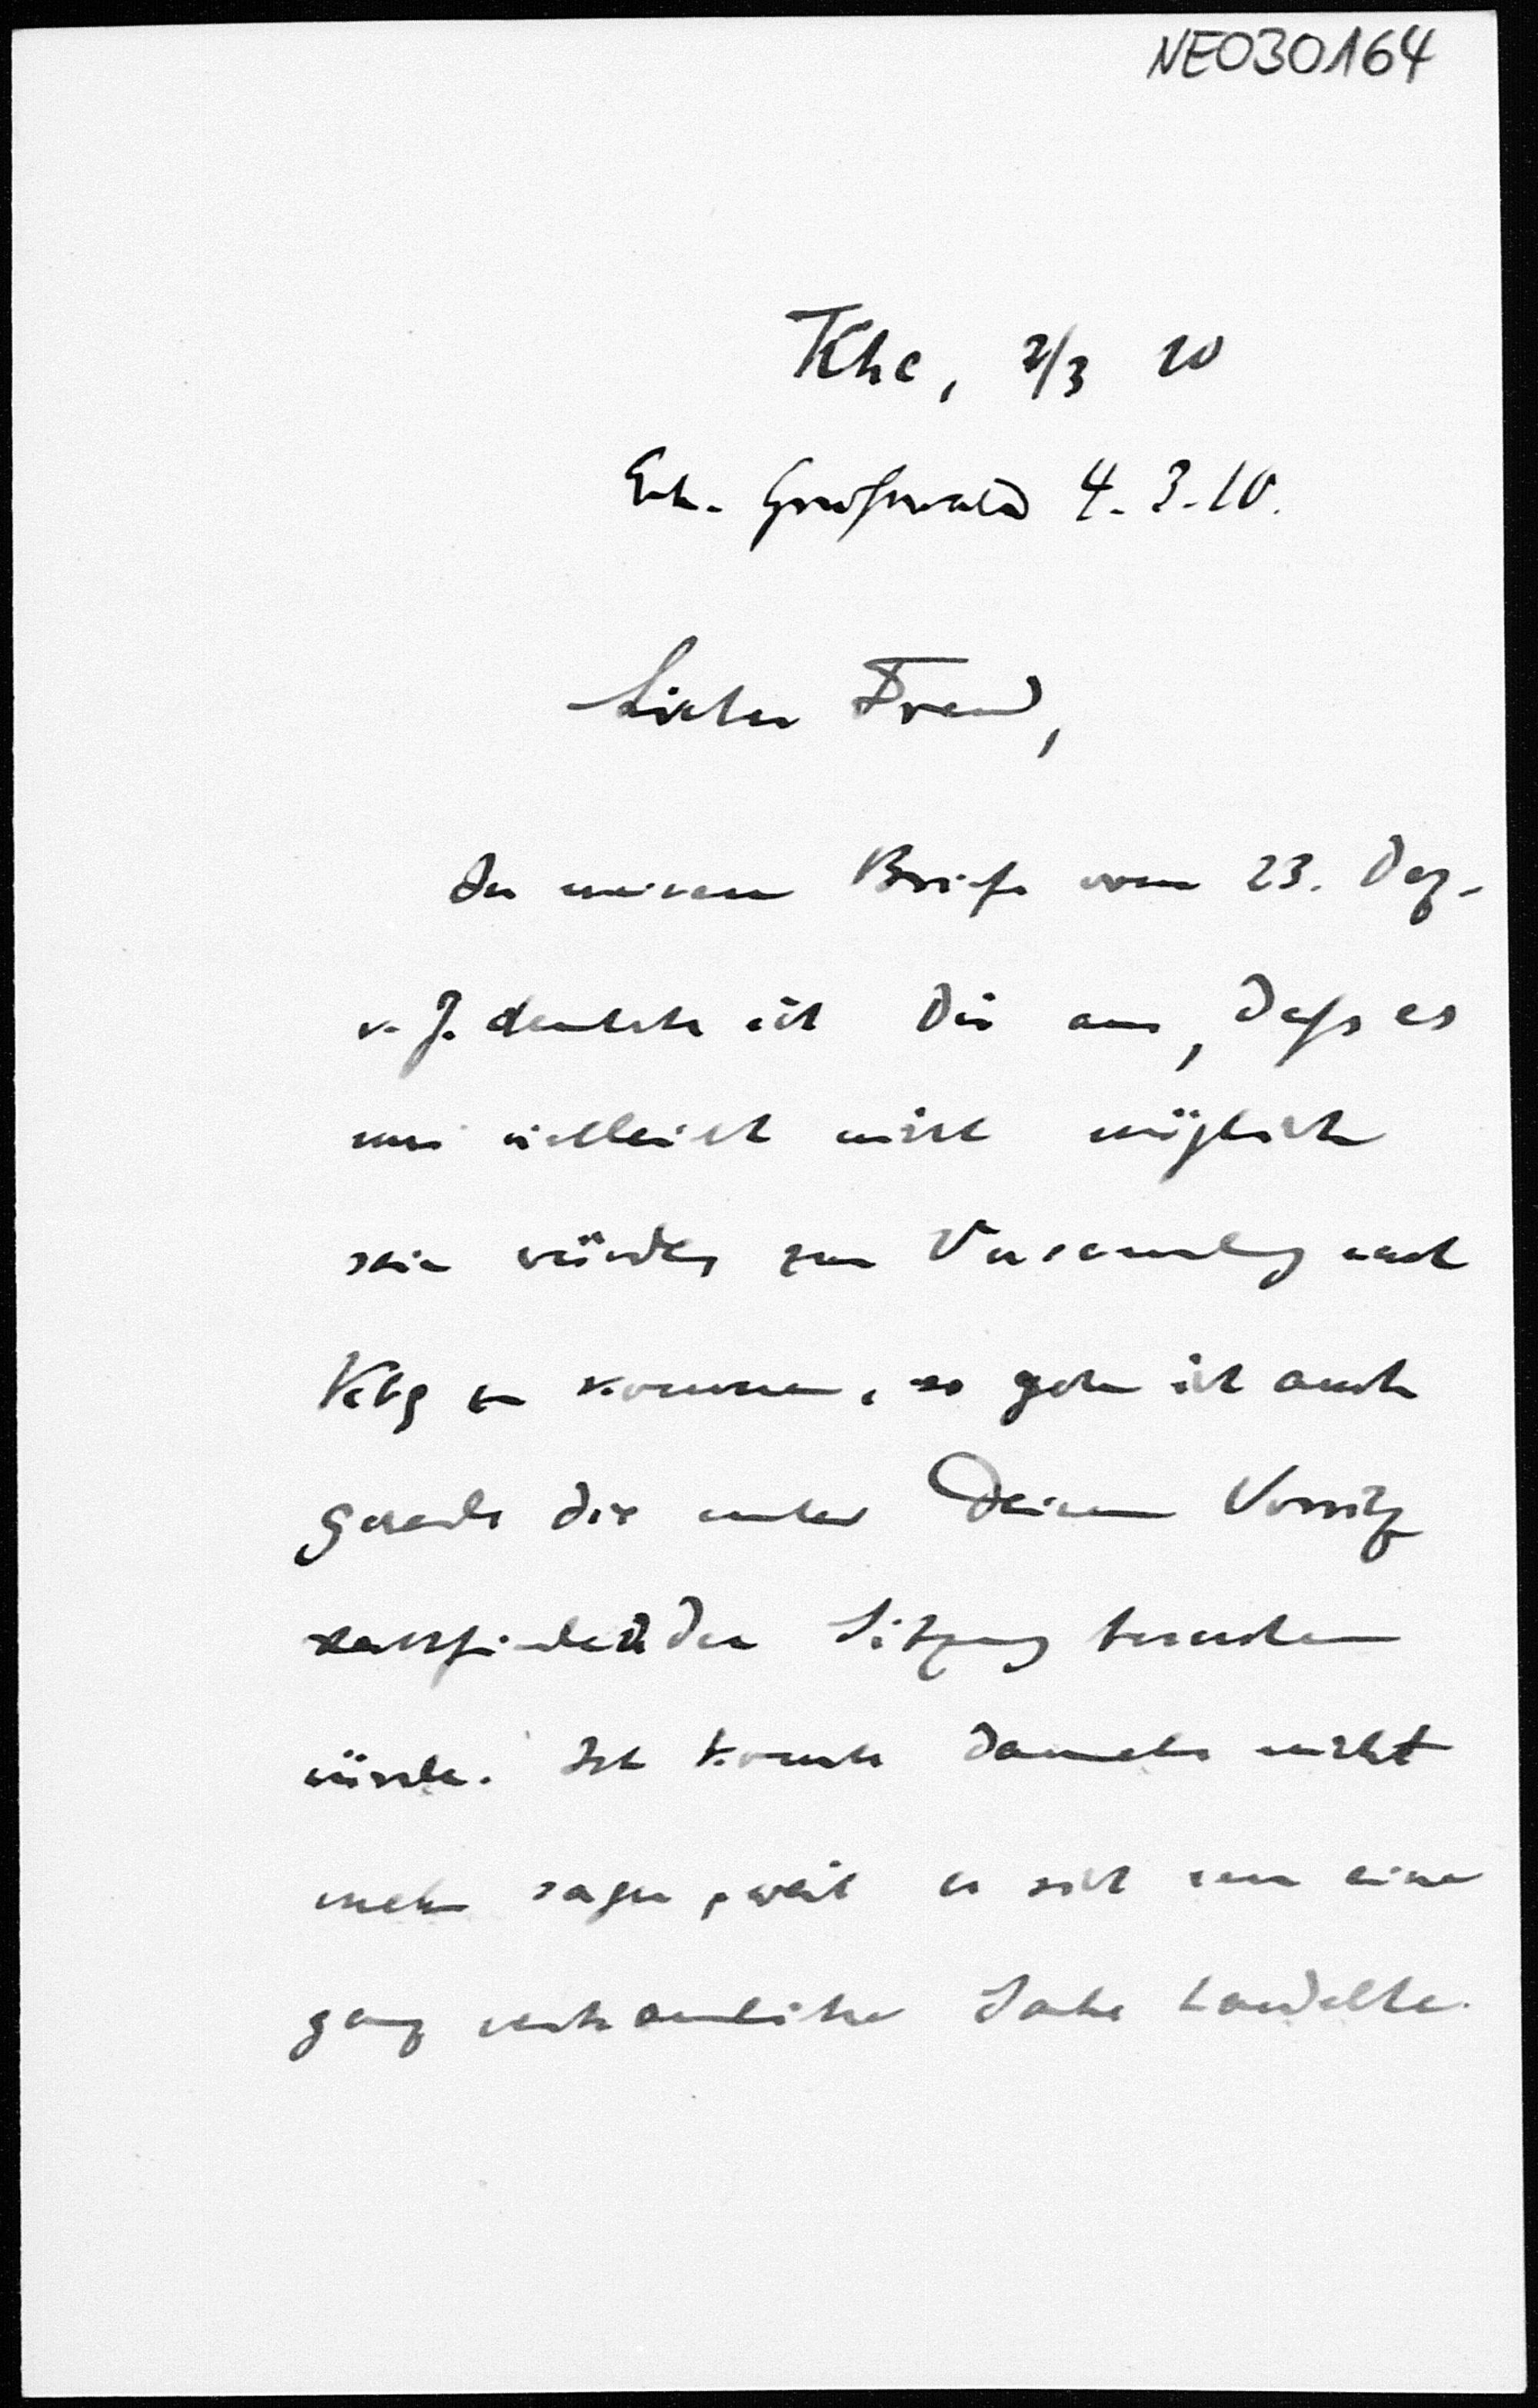 NE030164
Khe, 2/3 10
Erh. Greifswald 4.3.10.
Lieber Freund,
In meinem Briefe vom 23. Dez.
v. J. deutete ich Dir an, dass es
mir vielleicht nicht möglich
sein würde, zur Versammlung nach
Kbg zu kommen, so gern ich auch
gerade die unter Deinem Vorsitz
stattfindenden Sitzung besuchen
würde. Ich konnte damals nicht
mehr sagen, weil es sich um eine
ganz vertrauliche Sache handelte.